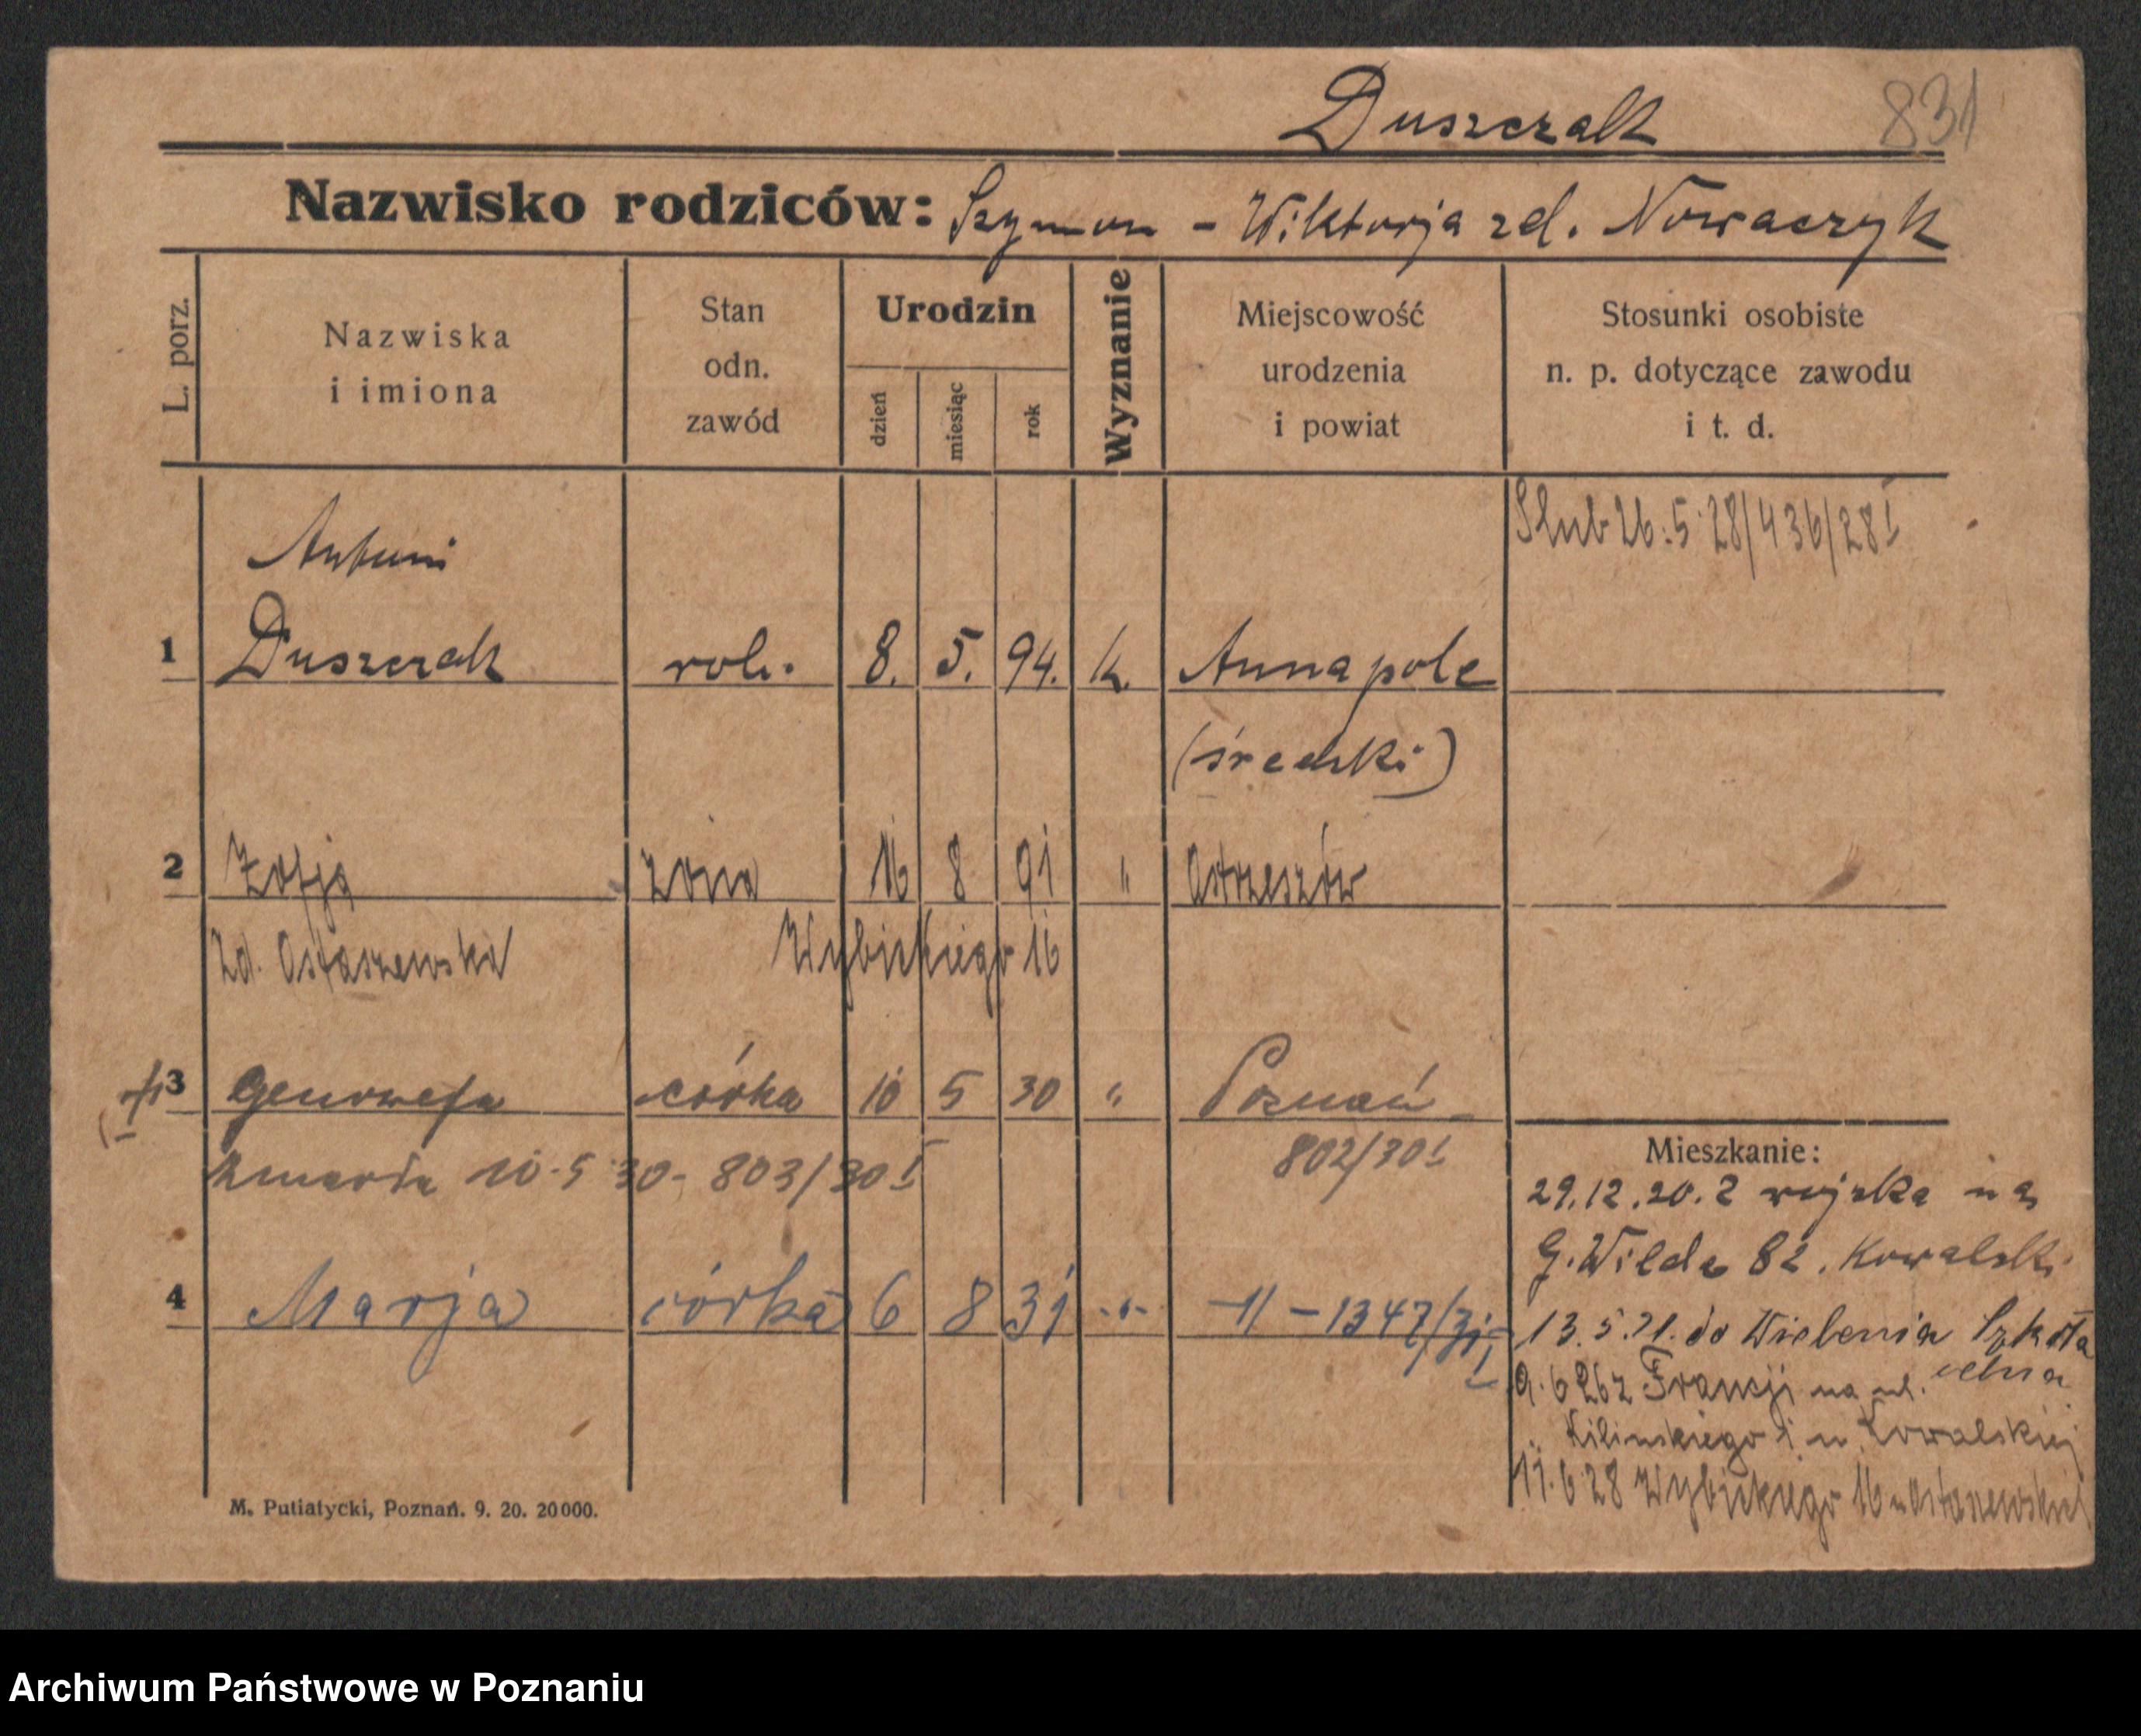 Duszczak 831
Nazwisko rodziców: Szymon - Wiktorja zd. Nowaczyk
L. porz.
Nazwiska
i imiona
Stan
odn.
zawód
Urodzin
dzień
miesiąc
rok
Wyznanie
Miejscowość
urodzenia
i powiat
Stosunki osobiste
n. p. dotyczące zawodu
i t. d.
Ślub 26.5.28/436/28 I
Antoni
1 Duszczak rob. 8. 5. 94. k. Annapole
(średzki)
2 Zofja żona 16 8 91 " Ostrzeszów
Zd. Ostaszewska Wybickiego 16
3 Genowefa córka 10 5 30 " Poznań
zmarła 10.5.30 - 803/30 I 802/30 I
4 Marja córka 6 8 31 -"- -11- 1347/31 I
Mieszkanie:
29.12.20. z wojska na
G. Wilda 82. Kowalski
13.5.21. do Wielenia Szkoła
celna
9.6 26 z Francji na ul.
Kilińskiego 1 u Kowalskiej
11.6 28 Wybickiego 16 u Ostaszewskiej
M. Putiatycki, Poznań. 9. 20. 20000.
Archiwum Państwowe w Poznaniu